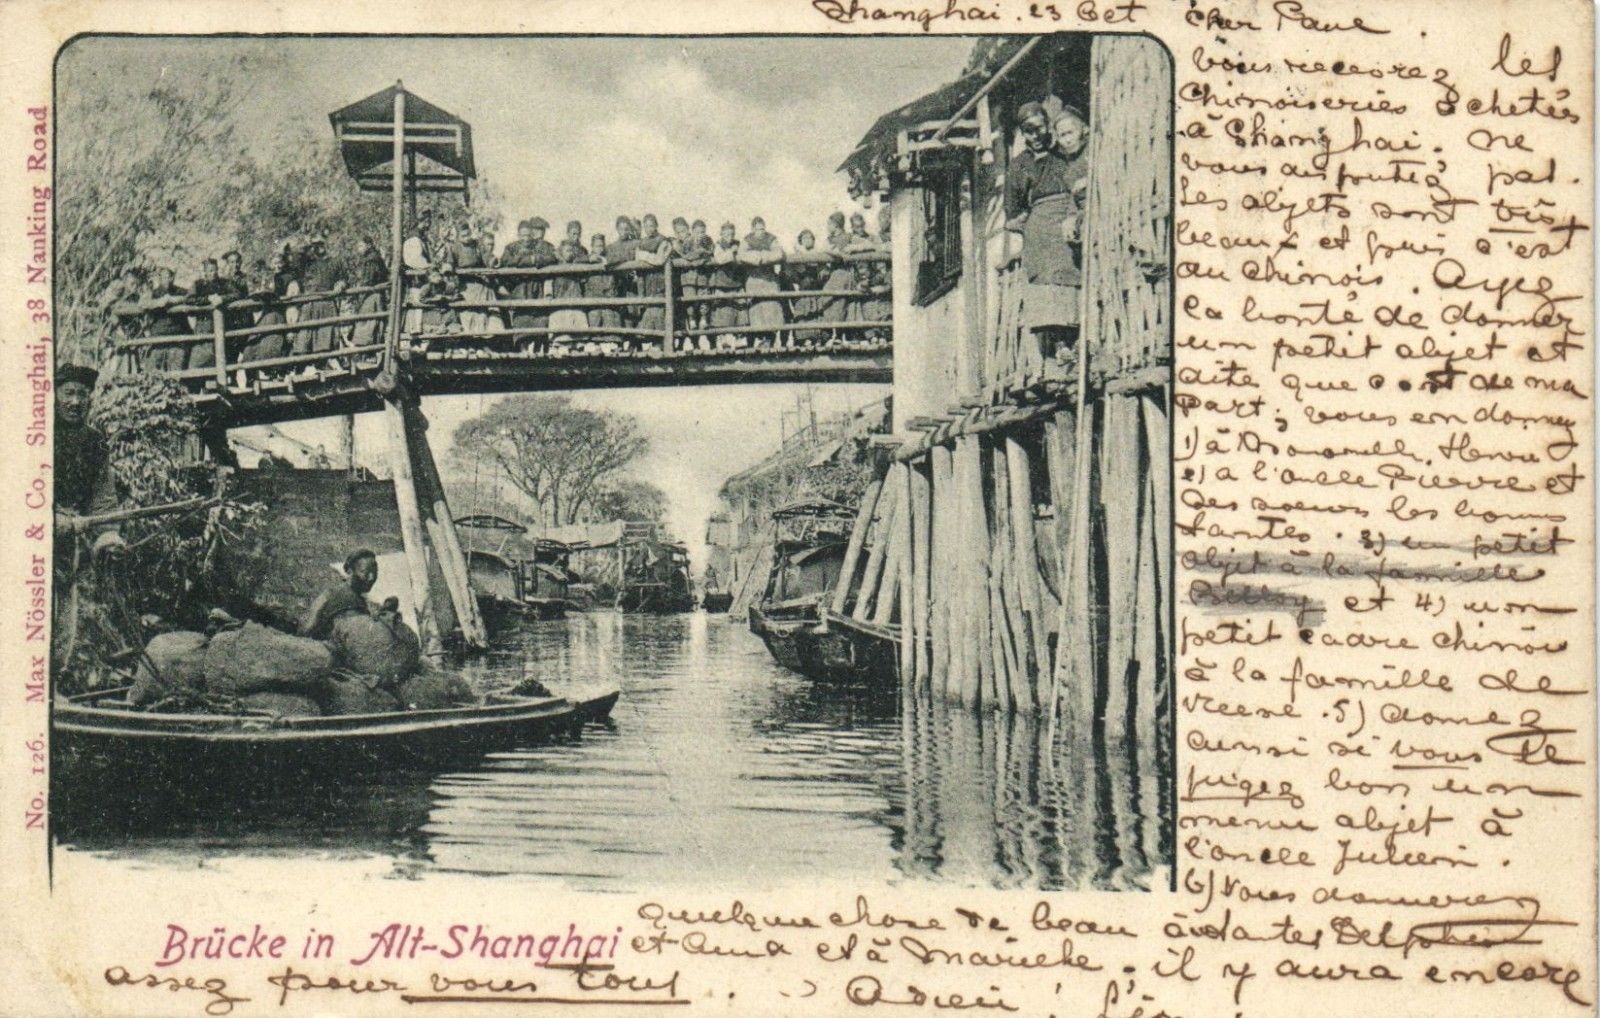 Shanghai. 23 Oct
Cher Paul.
vous recevrez les
chinoiseries achetés
à Shanghai. ne
vous disputez pas.
Les objets sont très
beaux et puis c'est
du chinois. Ayez
la bonté de donner
un petit objet et
dite que c'est de ma
part; vous en donnez
1) à Henri
2) à l'oncle Pierre et
ses soeurs les bonnes
tantes. 3) un petit
objet à la famille
et 4) un
petit cadre chinois
à la famille de
5) donnez
aussi si vous le
jugez bon un
menu objet à
l'oncle Julien.
6) vous donnerez
quelque chose de beau à tantes Delphine
et Anna et à Marieke. il y aura encore
assez pour vous tous. Adieu!
Brücke in Alt-Shanghai
No. 126. Max Nössler & Co., Shanghai, 38 Nanking Road